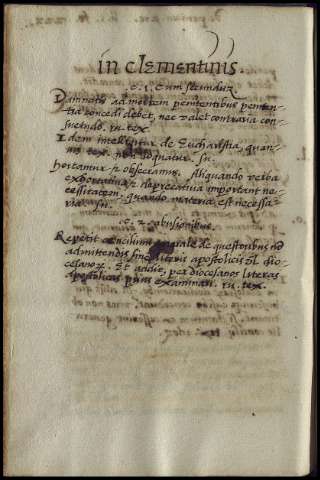 in clementinis.
c. 1. Cum secundum
Damnatis ad mortem penitentibus peniten-
tia concedi debet, nec valet contraria con-
suetudo. in tex.
Idem intelligitur de Eucharistia, quan-
tex. non loquatur.
hortamur et obsecramus. Aliquando verba
exhortativa et deprecativa important ne-
cessitatem, quando materia est necessa-
ria.
c. 2. abusionibus.
Repetit concilium generale de questoribus non
admittendis sine literis apostolicis vel dio-
cesanorum. Et addit, per diocesanos literas
apostolicas prius examinari. in tex.